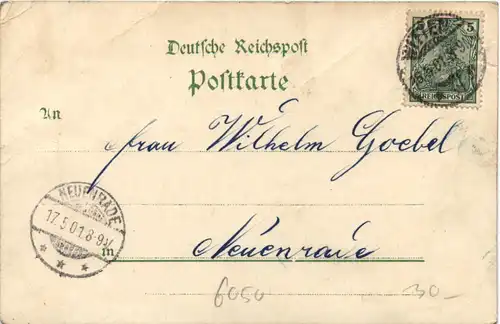 Deutsche Reichspost
Postkarte
5
REICHSPOST
An
Frau Wilhelm Goebel
NEUENRADE
17.5.01.8-9V.
in
Neuenrade
6050
30-